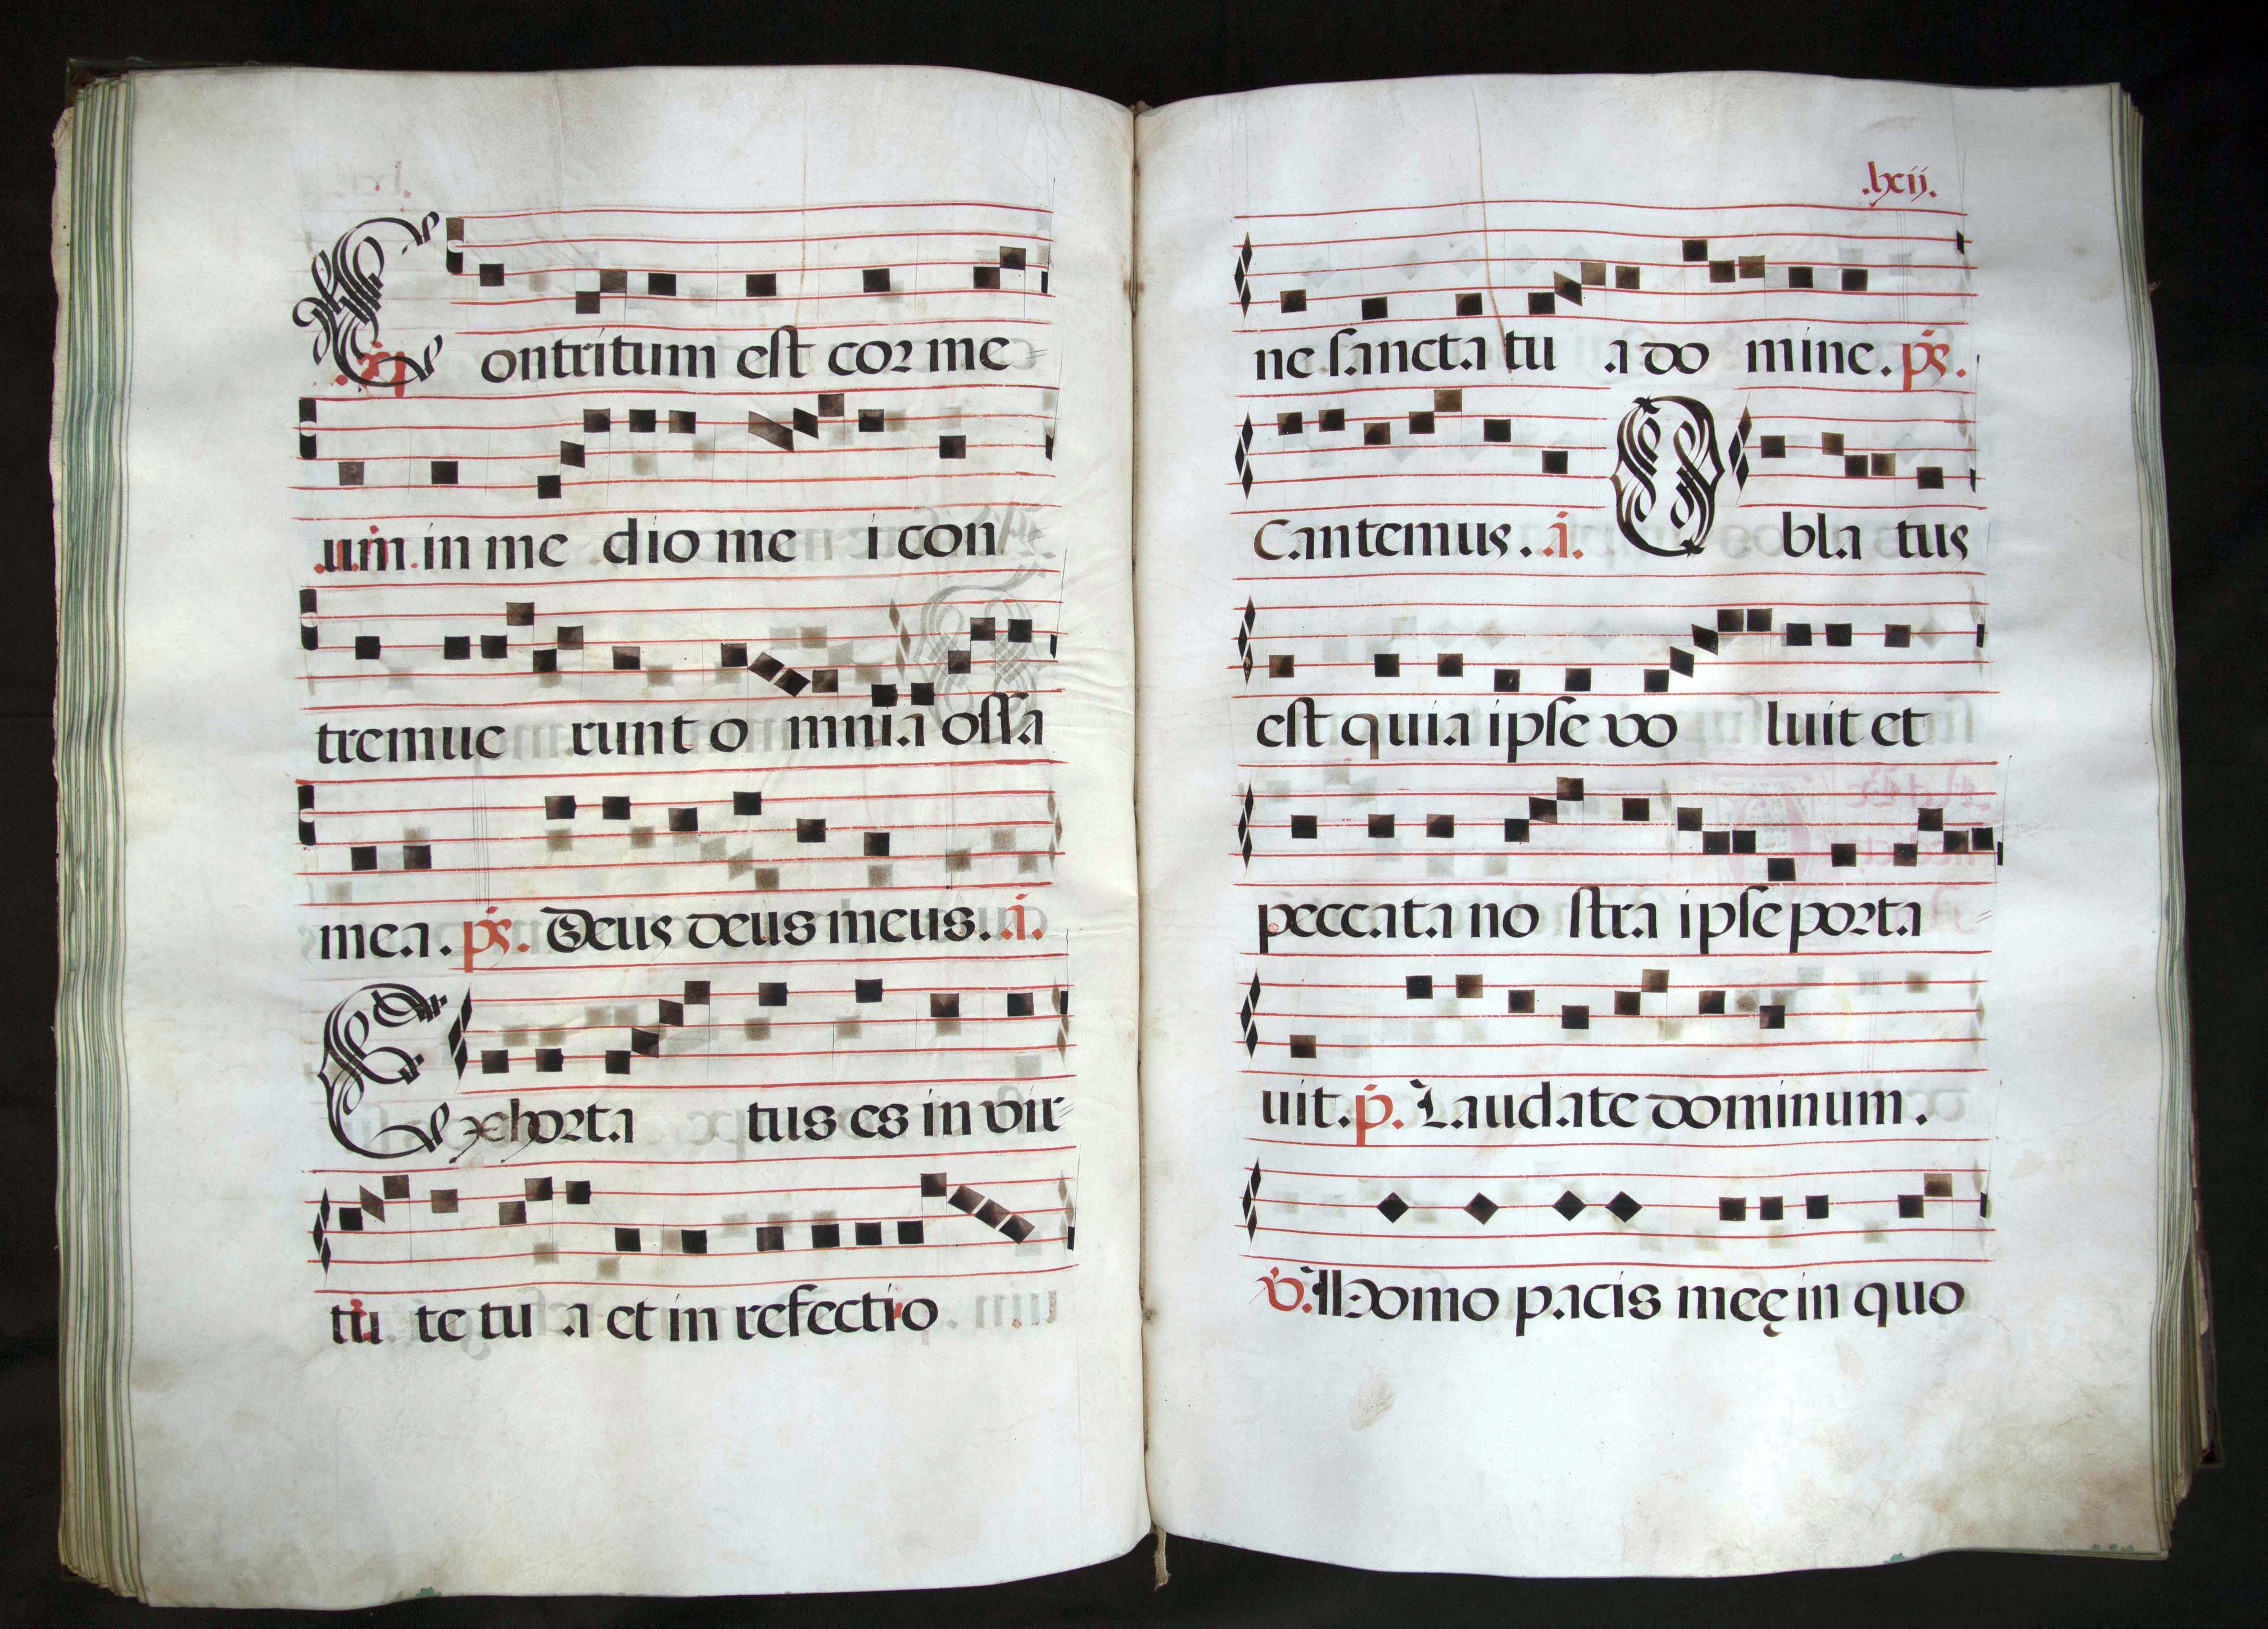 Contritum est cor me=
um in me dio me i con
tremue runt o mnia ossa
mea. ps. Deus deus meus. a.
Exhorta tus es in vir=
tu te tu a et in refectio
.lxii.
ne sancta tu a do mine. ps.
Cantemus. a. Obla tus
est quia ipse vo luit et
peccata no stra ipse porta =
uit. p. Laudate dominum.
℣. Homo pacis meę in quo